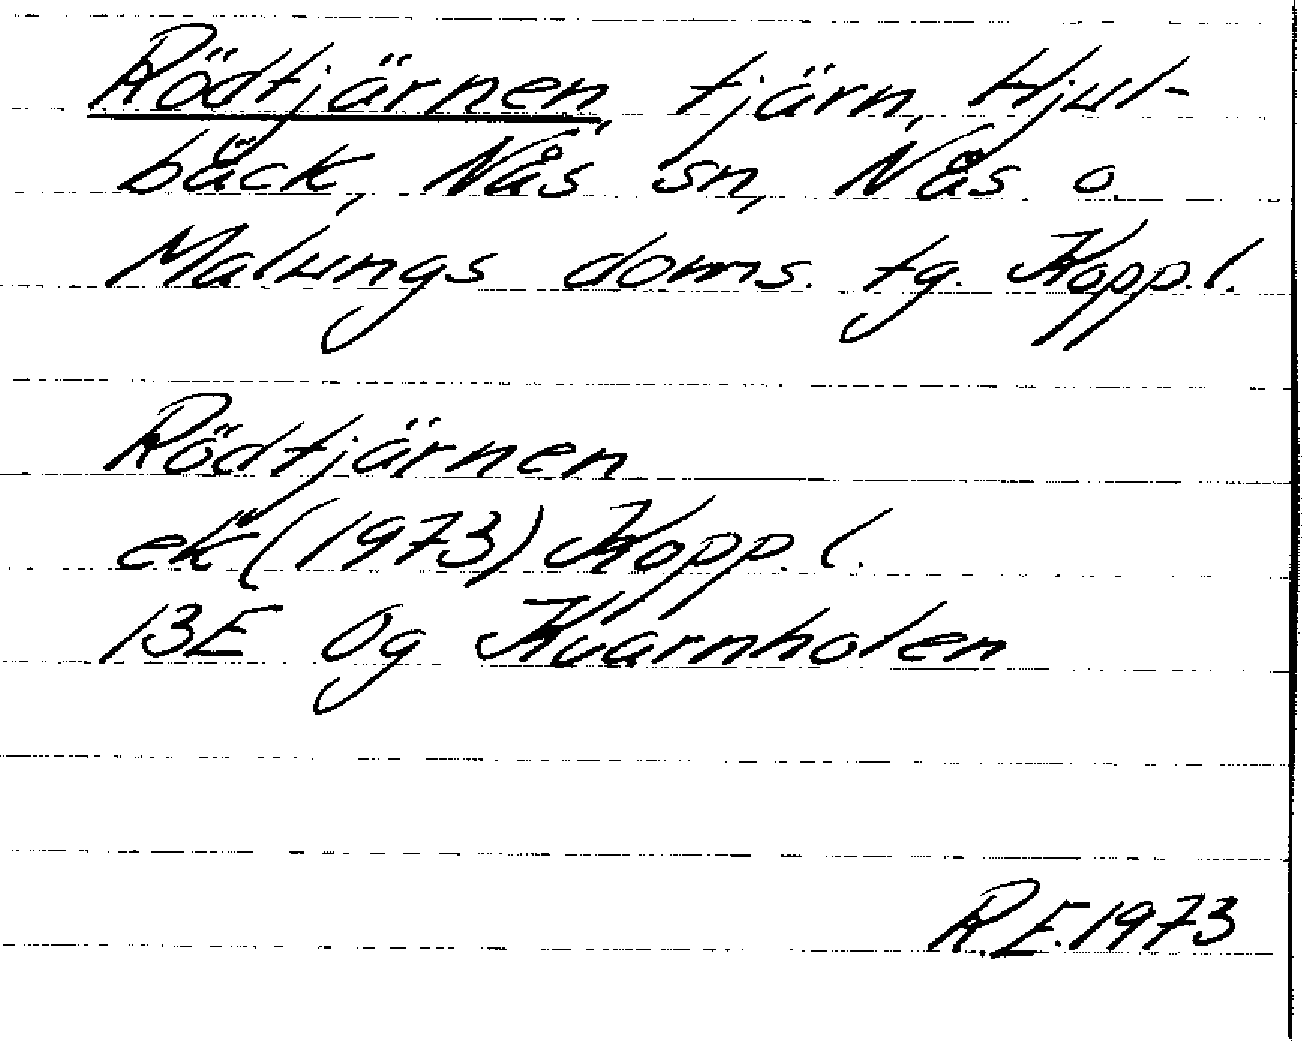 Rödtjärnen, tjärn, Hjul-
bäck, Nås sn, Nås o.
Malungs doms. tg. Kopp.l.
Rödtjärnen
ek (1973) Kopp.l.
13E 0g Kvarnholen
R.E. 1973